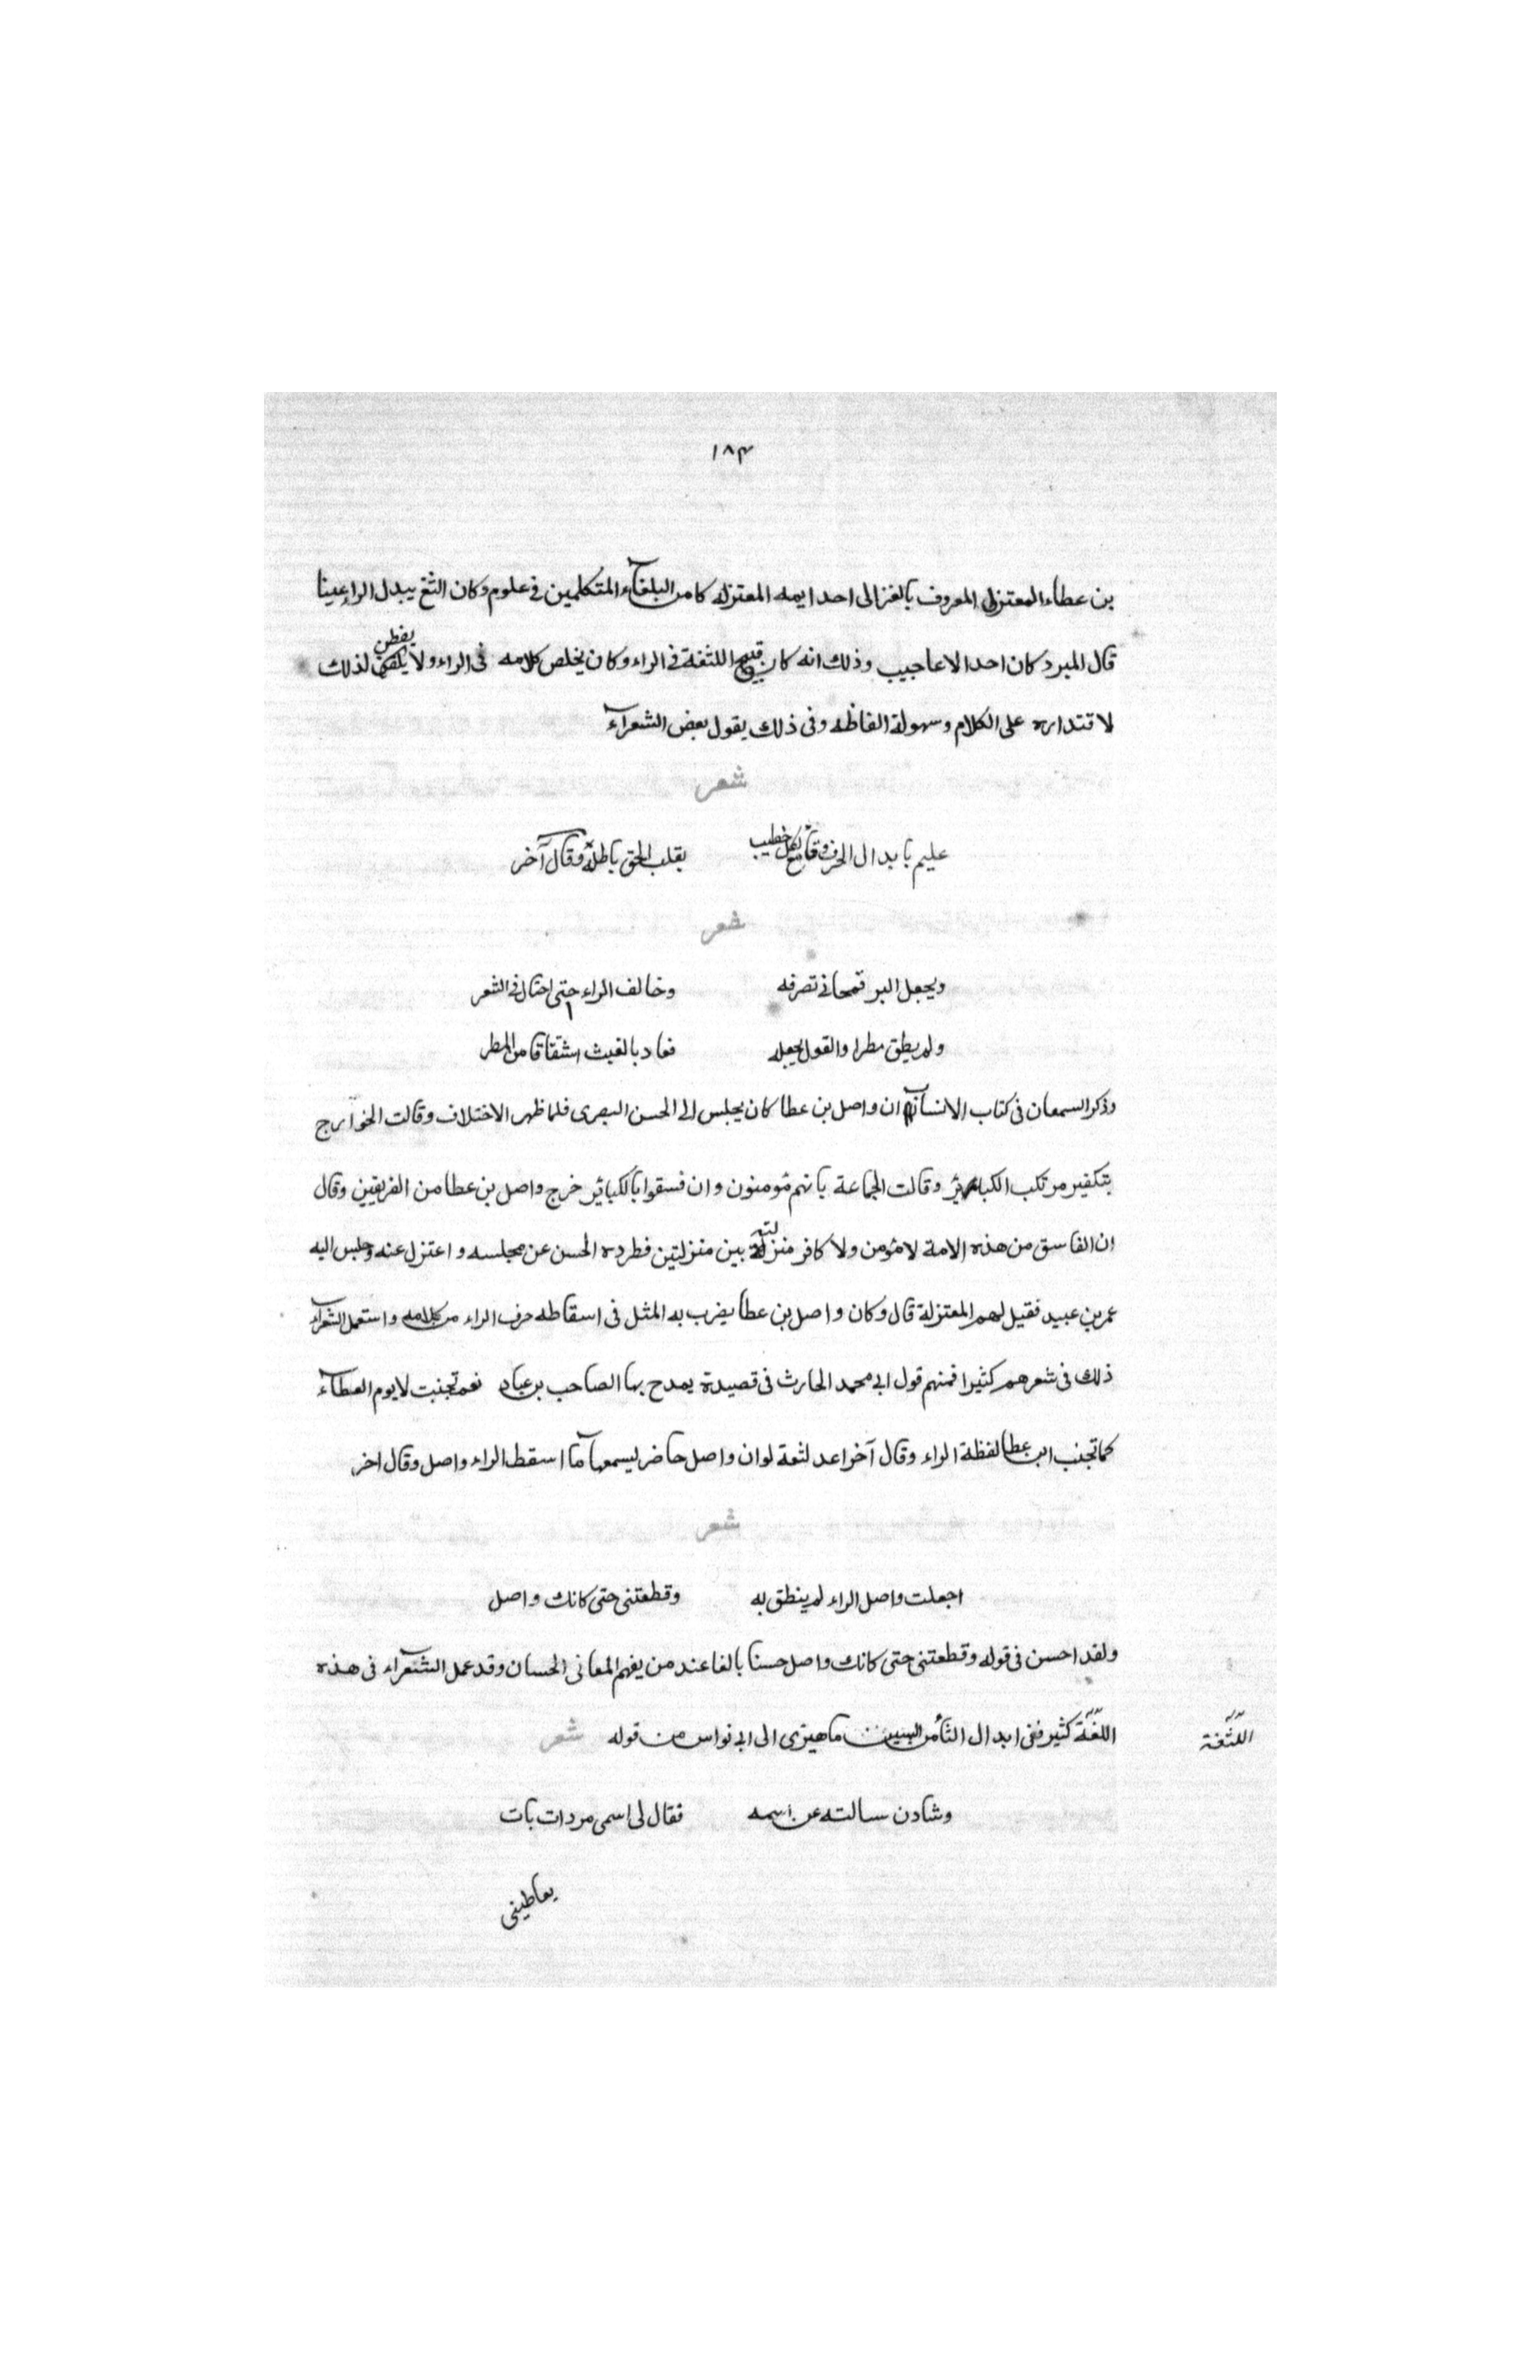 ١٨٣
بن عطاء المعتزلى المعروف بالغزالى احد ايمه المعتزله كا من البلغاء المتكلمين فى علوم وكان الثغ يبدل الراعينا
قال المبرد كان احد الاعاجيب وذلك انه كان قبيح اللثغة فى الراء وكان يخلص كلامه فى الراء ولا يفطن لذلك
لاقتداره على الكلام وسهولة الفاظه وفى ذلك يقول بعض الشعراء
شعر
عليم بابدال الحروف وقامع لكل خطيب يقلب الحق باطله وقال آخر
شعر
ويجعل البر قمحا فى تصرفه وخالف الراء حتى احتال فى الشعر
ولم يطق مطرا والقول يجعله فعاد بالغيث اشقاقا من المطر
وذكر السمعان فى كتاب الانساب ان واصل بن عطا كان يجلس الى الحسن البصرى فلما ظهر الاختلاف وقالت الخوارج
بتكفير مرتكب الكباير وقالت الجماعة بانهم مومنون وان فسقوا بالكباير خرج واصل بن عطا من الفريقين وقال
ان الفاسق من هذه الامة لا مؤمن ولا كافر منزلة بين منزلتين فطرده الحسن عن مجلسه واعتزل عنه وجلس اليه
عمر بن عبيد فقيل لهم المعتزلة قال وكان واصل بن عطا يضرب به المثل فى اسقاطه حرف الراء من كلامه واستعمل الشعراء
ذلك فى شعرهم كثيرا فمنهم قول ابى محمد الحارث فى قصيدة يمدح بها الصاحب بن عباد نعم تجنبت لا يوم العطاء
كما تجنب ابن عطا لفظة الراء وقال آخر اعد لثعة لوان واصل حاضر ليسمعها ما اسقط الراء واصل وقال اخر
شعر
اجعلت واصل الراء لم ينطق به وقطعتنى حتى كانك واصل
ولقد احسن فى قوله وقطعتنى حتى كانك واصل حسنا بالغا عند من يفهم المعانى الحسان وقد عمل الشعراء فى هذه
اللغة كثير ففى ابدال الثا من السين ما هيزى الى ابى نواس من قوله شعر
اللثغة
وشادن سالته عن اسمه فقال لى اسمى مردات بات
يعاطينى